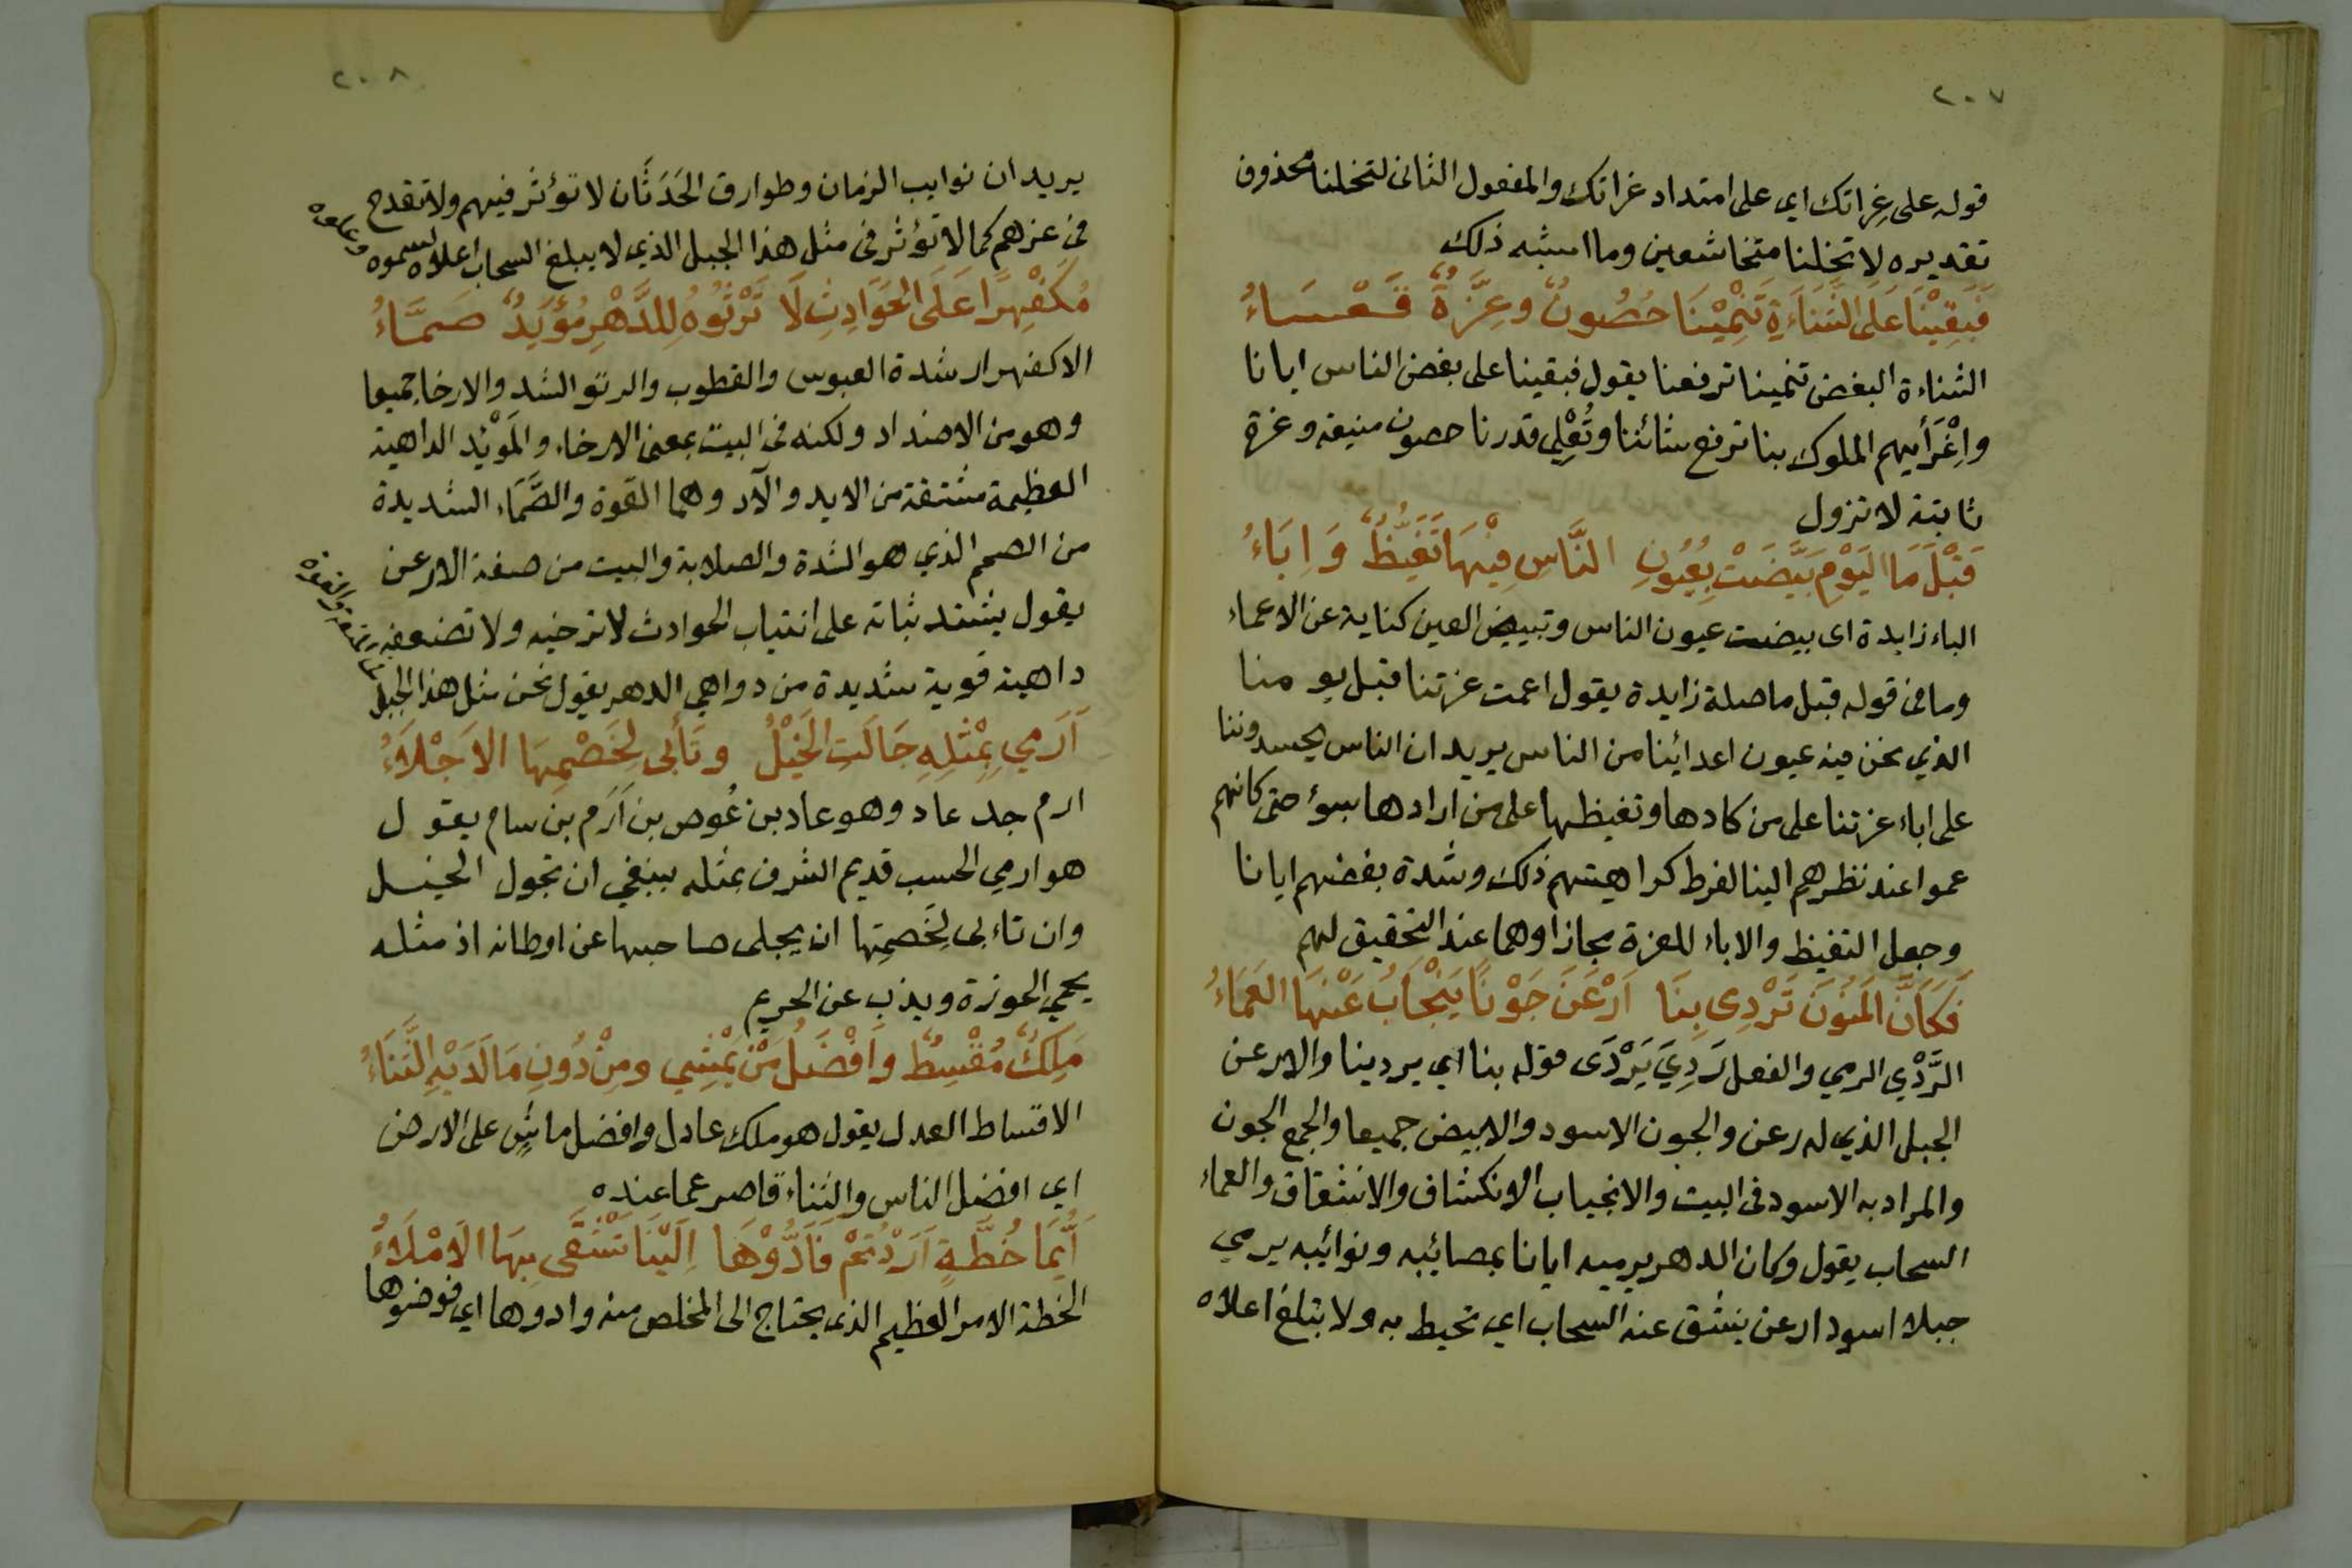 ٢٠٧
قوله على غِراتك اي على امتداد غراتك والمفعول الثانى لتخلنا محذوف
تقديره لا تخلنا متخاشعين وما اشبه ذلك
فَبَقِيْنَا عَلَى الشَّنَاءَةِ تَنْمِيْنَا حُصُونٌ وعِزَّةٌ قَعْسَاءُ
الشناءة البغض تنمينا ترفعنا يقول فبقينا على بغض الناس ايانا
واِغْرَأيهم الملوك بنا ترفع شائننا وتُعْلِي قدرنا حصون منيفه وعزة
ثابتة لا تزول
قَبْلَ مَا اليَوْمِ بَيَّضَتْ بِعُيُونِ النَّاسِ فِيْهَا تَغَيُّظٌ وَاِبَاءُ
الباء زايدة اى بيضت عيون الناس وتبييض العين كناية عن الاعماء
وما فى قوله قبل ما صلة زايدة يقول اعمت عزتنا قبل يومنا
الذي نحن فيه عيون اعدائينا من الناس يريد ان الناس يحسدوننا
على اباء عزتنا على من كادها وتغيظها على من ارادها بسوء حتى كانهم
عموا عند نظرهم الينا لفرط كراهيتهم ذلك وشدة بغضهم ايانا
وجعل التغيظ والاباء للعزة مجازا وهما عند التحقيق لهم
فَكَاَنَّ المَنُوْنَ تَرْدِى بِنَا اَرْعَنَ جَوْنًا يَنْجَابُ عَنْهَا العَمَاءُ
الرَّدْي الرمي والفعل رَدِيَ يَرْدَى قوله بنا اي يردينا والارعن
الجبل الذي له رعن والجون الاسود والابيض جميعا والجمع الجون
والمراد به الاسود فى البيت والانجياب الانكشاف والانشقاق والعماء
السحاب يقول وكان الدهر يرميه ايانا بمصائبه ونوائبه يرمي
جبلا اسود ارعن ينشق عنه السحاب اي تحيط به ولا بتلغ اعلاه
٢٠٨
يريد ان نوايب الزمان وطوارق الحَدَثَان لا تؤثر فيهم ولا تقدح
فى عزهم كما لا تؤثر فى مثل هذا الجبل الذي لا يبلغ السحاب اعلاه لسموه
مُكْفَهِرًا عَلَى الحَوَادِثِ لَا تَرْتُوْهُ لِلدَّهْرِ مُؤَيَدٌ صَمَّاءُ
الاكفهرار شدة العبوس والقطوب والرتو الشد والارخا جميعا
وهو من الاضداد ولكنه فى البيت بمعنى الارخاء والمَوْيْد الداهية
العظيمة مشتقة من الايد والآد وهما القوة والصَّمَاء الشديدة
من الصمم الذي هو الشدة والصلابة والبيت من صفة الارعن
يقول يشتد ثباته على انتياب الحوادث لا ترخيه ولا تضعفه
داهية قوية شديدة من دواهي الدهر يقول نحن مثل هذا الجبل
اَرَمِيٍ بِمِثْلِهِ جَالَتِ الخَيْلُ وتَأبَى لِخَصْمِهَا الاَجْلَاَءُ
ارم جد عاد وهو عاد بن عُوص بن اَرَم بن سام يقول
هو ارمي الحسب قديم الشرف بمثله ينبغي ان تجول الخيل
وان تاءبى لِخَصمِتها ان يجلى صاحبها عن اوطانه اذ مثله
يحمي الحوزة ويذب عن الحريم
مَلِكٌ مُقْسِطٌ وأَفْضَلُ مَنْ يَمْشِي ومِنْ دُونِ مَا لَدَيْهِ الثَّنَاءُ
الاقساط العدل يقول هو ملك عادل وافضل ماشٍ على الارض
اي افضل الناس والثناء قاصر عما عنده
اَيَّمَا خُطَّةٍ اَرَدْتُمْ فَاَدُّوْهَا اِلَيْنَا تَشْقَى بِهَا الاَمْلَاَءُ
الخطة الامر العظيم الذى يحتاج الى المخلص منه وادوها اي فوضوها